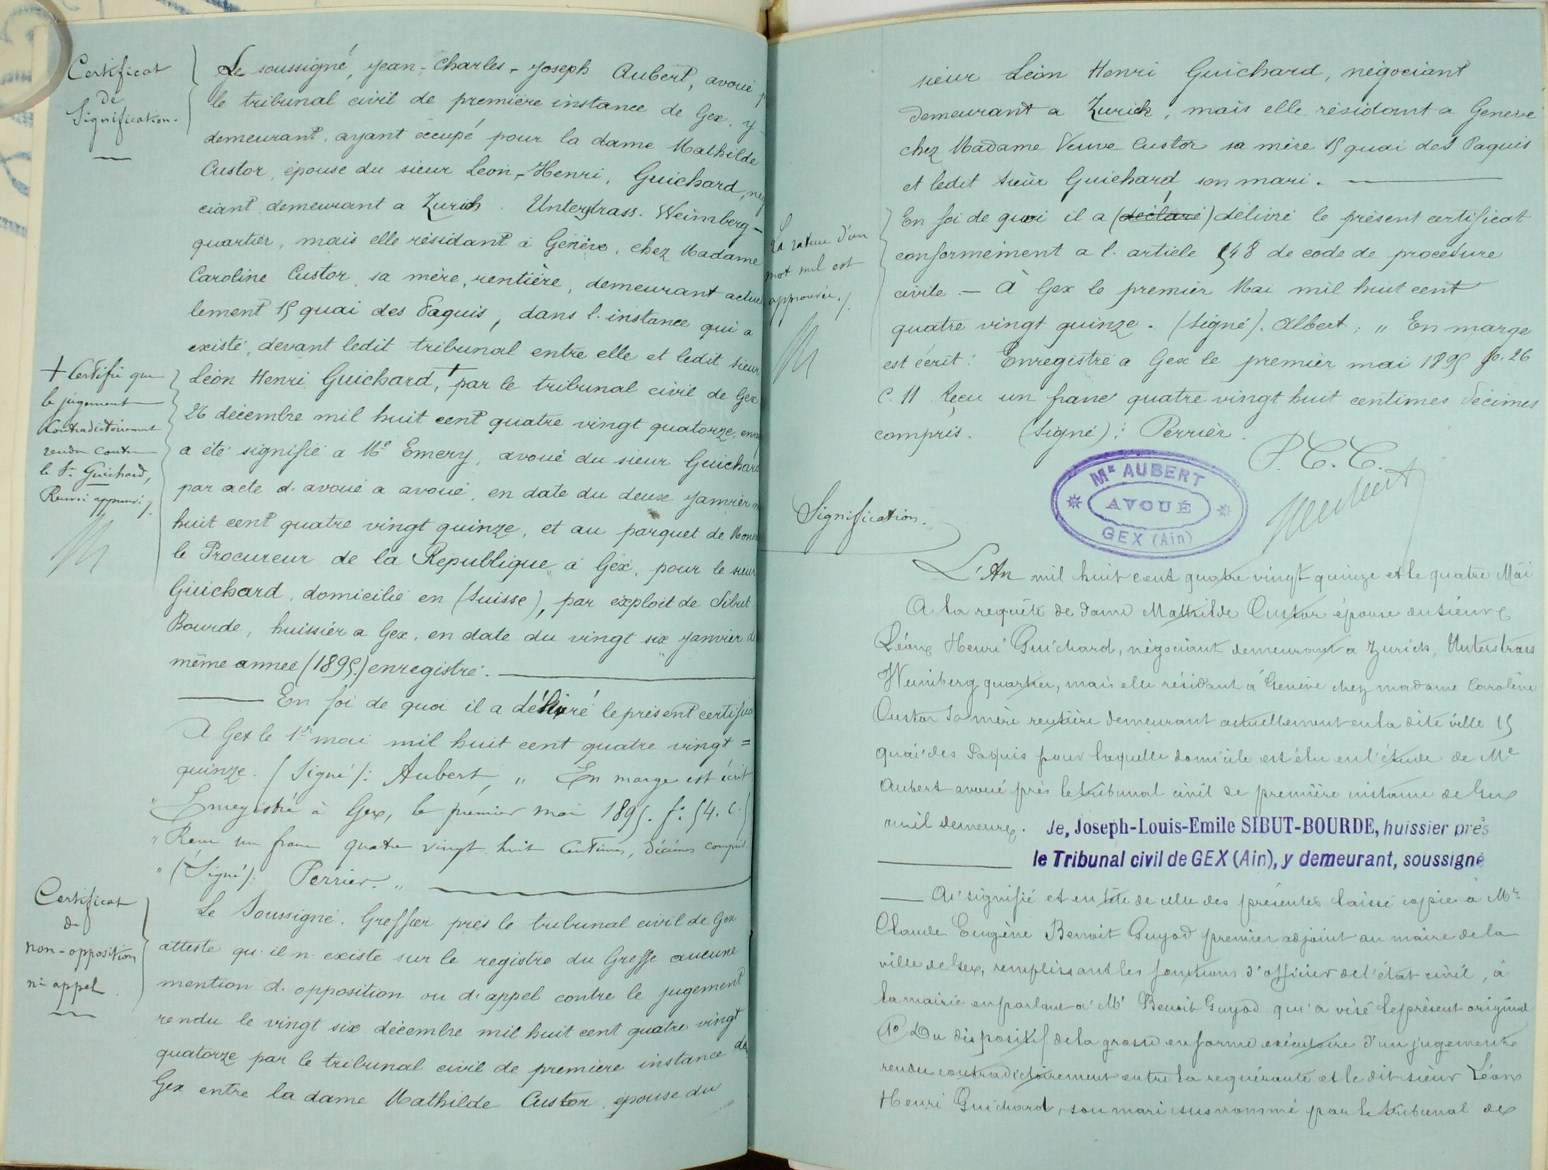 Certificat
de
Signification.
Le soussigné, Jean-Charles-Joseph Aubert, avoué
le tribunal civil de première instance de Gex, y
demeurant, ayant occupé pour la dame Mathilde
Custor, épouse du sieur Léon-Henri, Guichard, né
ciant demeurant a Zurich. Unterstrass. Weimberg-
quartier, mais elle résidant à Génève, chez Madame
Caroline Custor, sa mère, rentière, demeurant actuel
lement 15 quai des Paquis, dans l'instance qui a
existé, devant ledit tribunal entre elle et ledit sieur
Léon Henri Guichard, + par le tribunal civil de Gex
26 décembre mil huit cent quatre vingt quatorze,
a été signifié a Me Emery, avoué du sieur Guichard
par acte d'avoué a avoué, en date du deux janvier
huit cent quatre vingt quinze, et au parquet de Mons
le Procureur de la République à Gex, pour le sieur
Guichard, domicilié en (Suisse), par exploit de Sibut
Bourde, huissier a Gex, en date du vingt six janvier
même année (1895) enregistré.
+ Certifie que
le jugement
contradictoirement
rendu contre
le Sr Guichard,
Renvoi approuvé
En foi de quoi il a délivré le présent certificat
A Gex le 1er mai mil huit cent quatre vingt =
quinze. (Signé): Aubert, " En marge est écrit
" Enregistré à Gex, le premier mai 1895. fo 54. C.
" Reçu un franc quatre vingt huit centimes, décimes compris
" (Signé): Perrier. "
Certificat
de
non-opposition
ni appel.
Le Soussigné. Greffier près le tribunal civil de Gex
atteste qu'il n'existe sur le registre du Greffe aucune
mention d'opposition ou d'appel contre le jugement
rendu le vingt six décembre mil huit cent quatre vingt
quatorze par le tribunal civil de première instance de
Gex entre la dame Mathilde Custor, épouse du
sieur Léon Henri Guichard, négociant
demeurant a Zurich, mais elle résidant a Genève
chez Madame Veuve Custor sa mère 15 quai des Paquis
et ledit sieur Guichard son mari.
En foi de quoi il a (déclaré) délivré le présent certificat
conformément a l'article 548 de code de procédure
civile - A Gex le premier Mai mil huit cent
quatre vingt quinze. (Signé). Albert; " En marge
est écrit: Enregistré a Gex le premier mai 1895 fo. 26
C. 11 Reçu un franc quatre vingt huit centimes décimes
compris. (Signé): Perrier.
La rature d'un
mot nul est
approuvée.
P.C.C.
Me AUBERT
AVOUÉ
GEX (Ain)
Signification.
L'An mil huit cent quatre vingt quinze et le quatre Mai
A la requête de dame Mathilde Custor épouse du sieur
Léon Henri Guichard, négociant demeurant a Zurich, Unterstrass
Weinberg quartier, mais elle résidant à Genève chez madame Caroline
Custor sa mère rentière demeurant actuellement en la dite ville 15
quai des Paquis pour laquelle domicile est élu en l'étude de Me
Aubert avoué près le tribunal civil de première instance de Gex
y demeure.
Je, Joseph-Louis-Emile SIBUT-BOURDE, huissier près
le Tribunal civil de GEX (Ain), y demeurant, soussigné
Ai signifié et en tête de celle des présentes laissé copie à Mr
Claude Eugène Benoit Guyod premier adjoint au maire de la
ville de Gex, remplissant les fonctions d'officier de l'état civil, à
la mairie en parlant à Mr Benoit Guyod qui a visé le présent original
1o Du dispositif de la grosse en forme exécutoire d'un jugement
rendu contradictoirement entre la requérante et le dit sieur Léon
Henri Guichard, son mari susnommé par le tribunal de